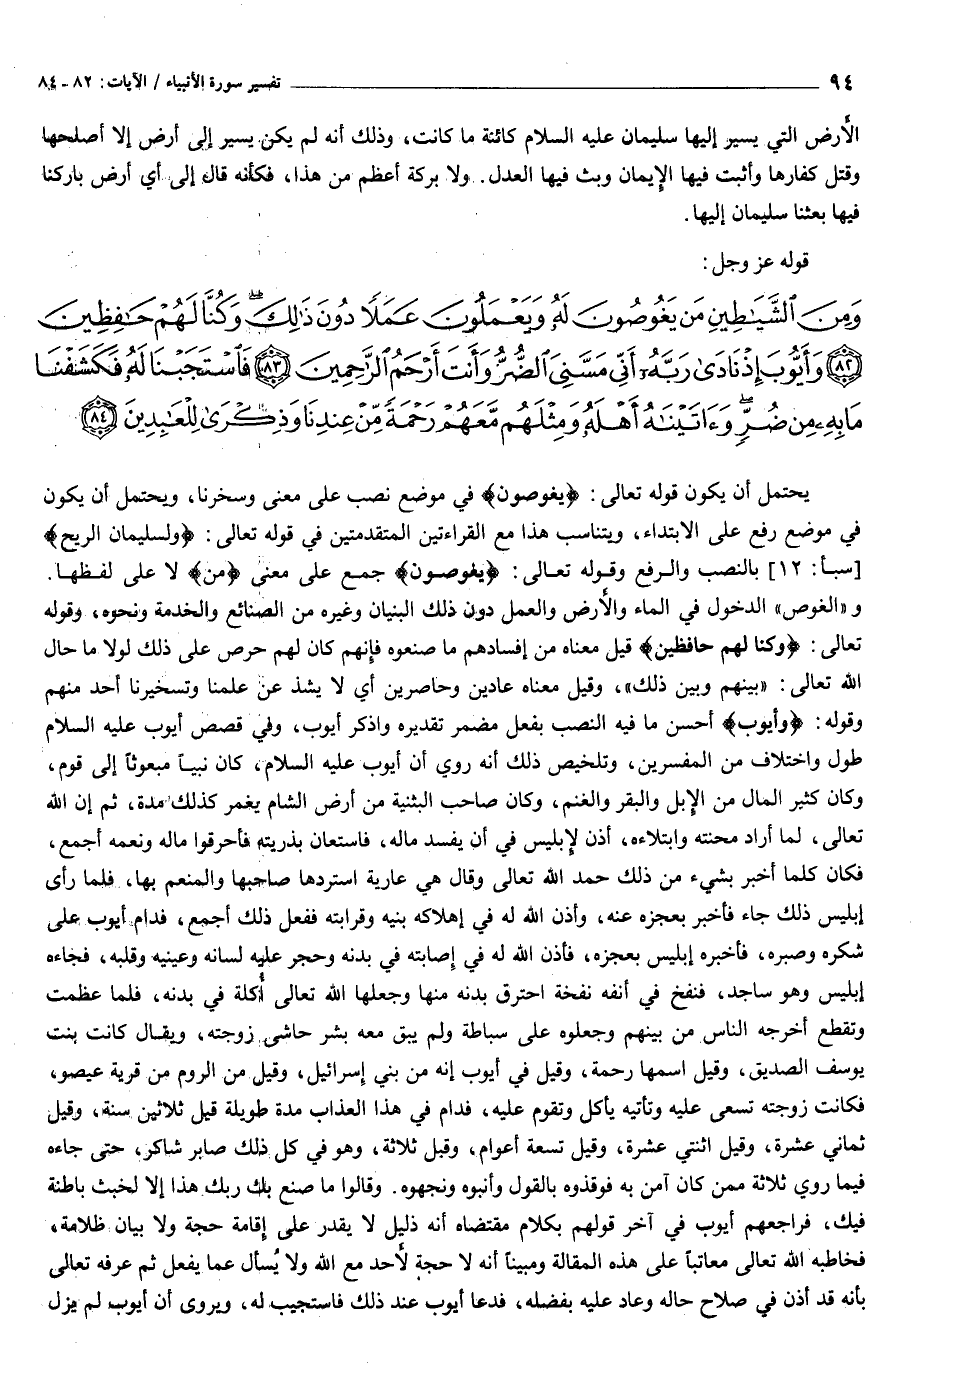 ٩٤ تفسير سورة الأنبياء / الآيات: ٨٢ - ٨٤
الأرض التي يسير إليها سليمان عليه السلام كائنة ما كانت، وذلك أنه لم يكن يسير إلى أرض إلا أصلحها
وقتل كفارها وأثبت فيها الإيمان وبث فيها العدل. ولا بركة أعظم من هذا، فكأنه قال إلى أي أرض باركنا
فيها بعثنا سليمان إليها.
قوله عز وجل:
وَمِنَ ٱلشَّيَٰطِينِ مَن يَغُوصُونَ لَهُۥ وَيَعْمَلُونَ عَمَلًا دُونَ ذَٰلِكَ ۖ وَكُنَّا لَهُمْ حَٰفِظِينَ
﴿٨٢﴾ وَأَيُّوبَ إِذْ نَادَىٰ رَبَّهُۥٓ أَنِّى مَسَّنِىَ ٱلضُّرُّ وَأَنتَ أَرْحَمُ ٱلرَّٰحِمِينَ ﴿٨٣﴾ فَٱسْتَجَبْنَا لَهُۥ فَكَشَفْنَا
مَا بِهِۦ مِن ضُرٍّ ۖ وَءَاتَيْنَٰهُ أَهْلَهُۥ وَمِثْلَهُم مَّعَهُمْ رَحْمَةً مِّنْ عِندِنَا وَذِكْرَىٰ لِلْعَٰبِدِينَ ﴿٨٤﴾
يحتمل أن يكون قوله تعالى: ﴿يغوصون﴾ في موضع نصب على معنى وسخرنا، ويحتمل أن يكون
في موضع رفع على الابتداء، ويتناسب هذا مع القراءتين المتقدمتين في قوله تعالى: ﴿ولسليمان الريح﴾
[سبأ: ١٢] بالنصب والرفع وقوله تعالى: ﴿يغوصون﴾ جمع على معنى ﴿من﴾ لا على لفظها.
و «الغوص» الدخول في الماء والأرض والعمل دون ذلك البنيان وغيره من الصنائع والخدمة ونحوه، وقوله
تعالى: ﴿وكنا لهم حافظين﴾ قيل معناه من إفسادهم ما صنعوه فإنهم كان لهم حرص على ذلك لولا ما حال
الله تعالى: «بينهم وبين ذلك»، وقيل معناه عادين وحاصرين أي لا يشذ عن علمنا وتسخيرنا أحد منهم
وقوله: ﴿وأيوب﴾ أحسن ما فيه النصب بفعل مضمر تقديره واذكر أيوب، وفي قصص أيوب عليه السلام
طول واختلاف من المفسرين، وتلخيص ذلك أنه روي أن أيوب عليه السلام، كان نبياً مبعوثاً إلى قوم،
وكان كثير المال من الإبل والبقر والغنم، وكان صاحب البثنية من أرض الشام يغمر كذلك مدة، ثم إن الله
تعالى، لما أراد محنته وابتلاءه، أذن لإبليس في أن يفسد ماله، فاستعان بذريته فأحرقوا ماله ونعمه أجمع،
فكان كلما أخبر بشيء من ذلك حمد الله تعالى وقال هي عارية استردها صاحبها والمنعم بها، فلما رأى
إبليس ذلك جاء فأخبر بعجزه عنه، وأذن الله له في إهلاكه بنيه وقرابته ففعل ذلك أجمع، فدام أيوب على
شكره وصبره، فأخبره إبليس بعجزه، فأذن الله له في إصابته في بدنه وحجر عليه لسانه وعينيه وقلبه، فجاءه
إبليس وهو ساجد، فنفخ في أنفه نفخة احترق بدنه منها وجعلها الله تعالى أكلة في بدنه، فلما عظمت
وتقطع أخرجه الناس من بينهم وجعلوه على سباطة ولم يبق معه بشر حاشى زوجته، ويقال كانت بنت
يوسف الصديق، وقيل اسمها رحمة، وقيل في أيوب إنه من بني إسرائيل، وقيل من الروم من قرية عيصو،
فكانت زوجته تسعى عليه وتأتيه يأكل وتقوم عليه، فدام في هذا العذاب مدة طويلة قيل ثلاثين سنة، وقيل
ثماني عشرة، وقيل اثنتي عشرة، وقيل تسعة أعوام، وقيل ثلاثة، وهو في كل ذلك صابر شاكر، حتى جاءه
فيما روي ثلاثة ممن كان آمن به فوقذوه بالقول وأنبوه ونجهوه. وقالوا ما صنع بك ربك هذا إلا لخبث باطنة
فيك، فراجعهم أيوب في آخر قولهم بكلام مقتضاه أنه ذليل لا يقدر على إقامة حجة ولا بيان ظلامة،
فخاطبه الله تعالى معاتباً على هذه المقالة ومبيناً أنه لا حجة لأحد مع الله ولا يُسأل عما يفعل ثم عرفه تعالى
بأنه قد أذن في صلاح حاله وعاد عليه بفضله، فدعا أيوب عند ذلك فاستجيب له، ويروى أن أيوب لم يزل